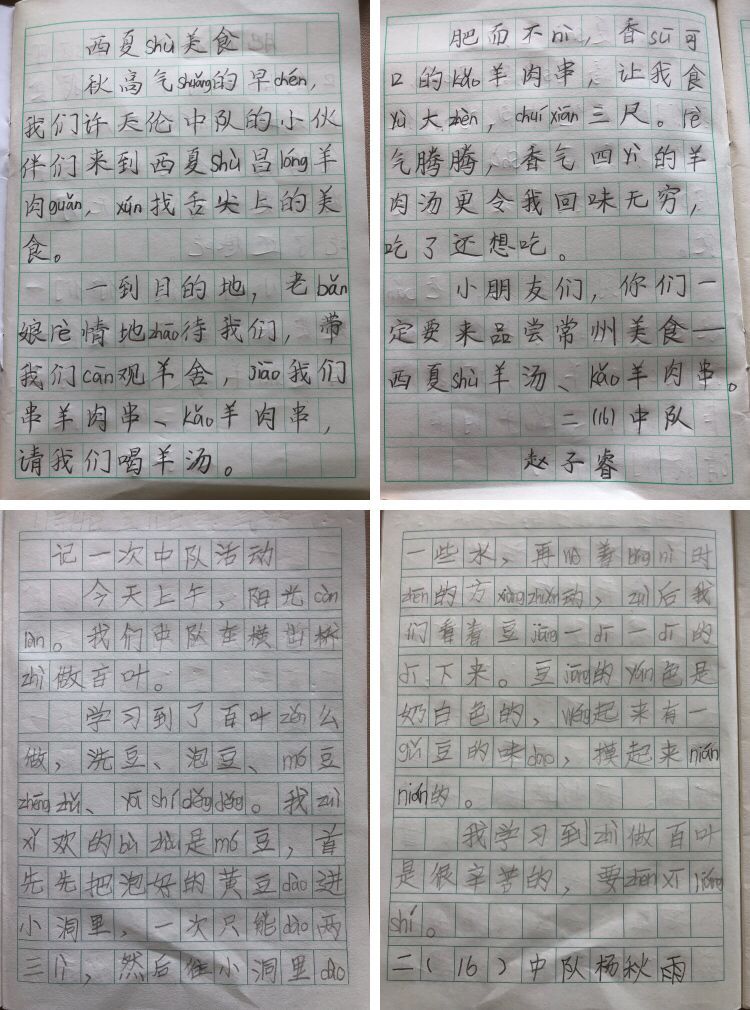 西夏shù美食
秋高气shuǎng的早chén，
我们许天伦中队的小伙
伴们来到西夏shù昌lóng羊
肉guǎn，xún找舌尖上的美
食。
一到目的地，老bǎn
娘rè情地zhāo待我们，带
我们cān观羊舍，jiāo我们
串羊肉串、kǎo羊肉串，
请我们喝羊汤。
肥而不nì，香sū可
口的kǎo羊肉串，让我食
yù大zhèn，chuí xián三尺。rè
气腾腾，香气四yì的羊
肉汤更令我回味无穷，
吃了还想吃。
小朋友们，你们一
定要来品尝常州美食——
西夏shù羊汤、kǎo羊肉串。
二(16)中队
赵子睿
记一次中队活动
今天上午，阳光càn
làn。我们中队在横山桥
zhì做百叶。
学习到了百叶zěn么
做，洗豆、泡豆、mó豆
zhēng zhǔ、yā shí děng děng。我zuì
xǐ欢的bù zhòu是mó豆，首
先先把泡好的黄豆dào进
小洞里，一次只能dào两
三lì，然后往小洞里dào
一些水，再 着 nì时
zhēn的方xiàng zhuàn动，zuì后我
们看着豆jiāng一dī一dī的
dī下来。豆jiāng的yán色是
奶白色的，wén起来有一
gǔ豆的味dào，摸起来nián
nián的。
我学习到zhì做百叶
是很辛苦的，要zhēn xī liáng
shí。
二(16)中队杨秋雨